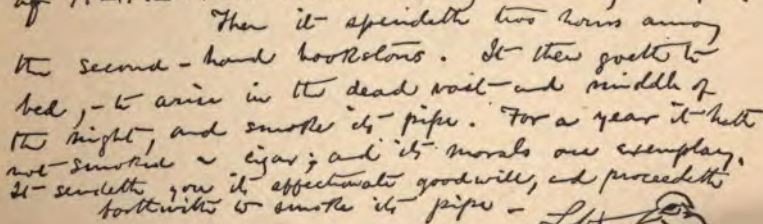 of
Then it spendeth two hours among
the second-hand bookstores. It then goeth to
bed, - to arise in the dead vast and middle of
the night, and smoke its pipe. For a year it hath
not smoked a cigar; and its morals are exemplary.
It sendeth you its affectionate goodwill, and proceedeth
forthwith to smoke its pipe -